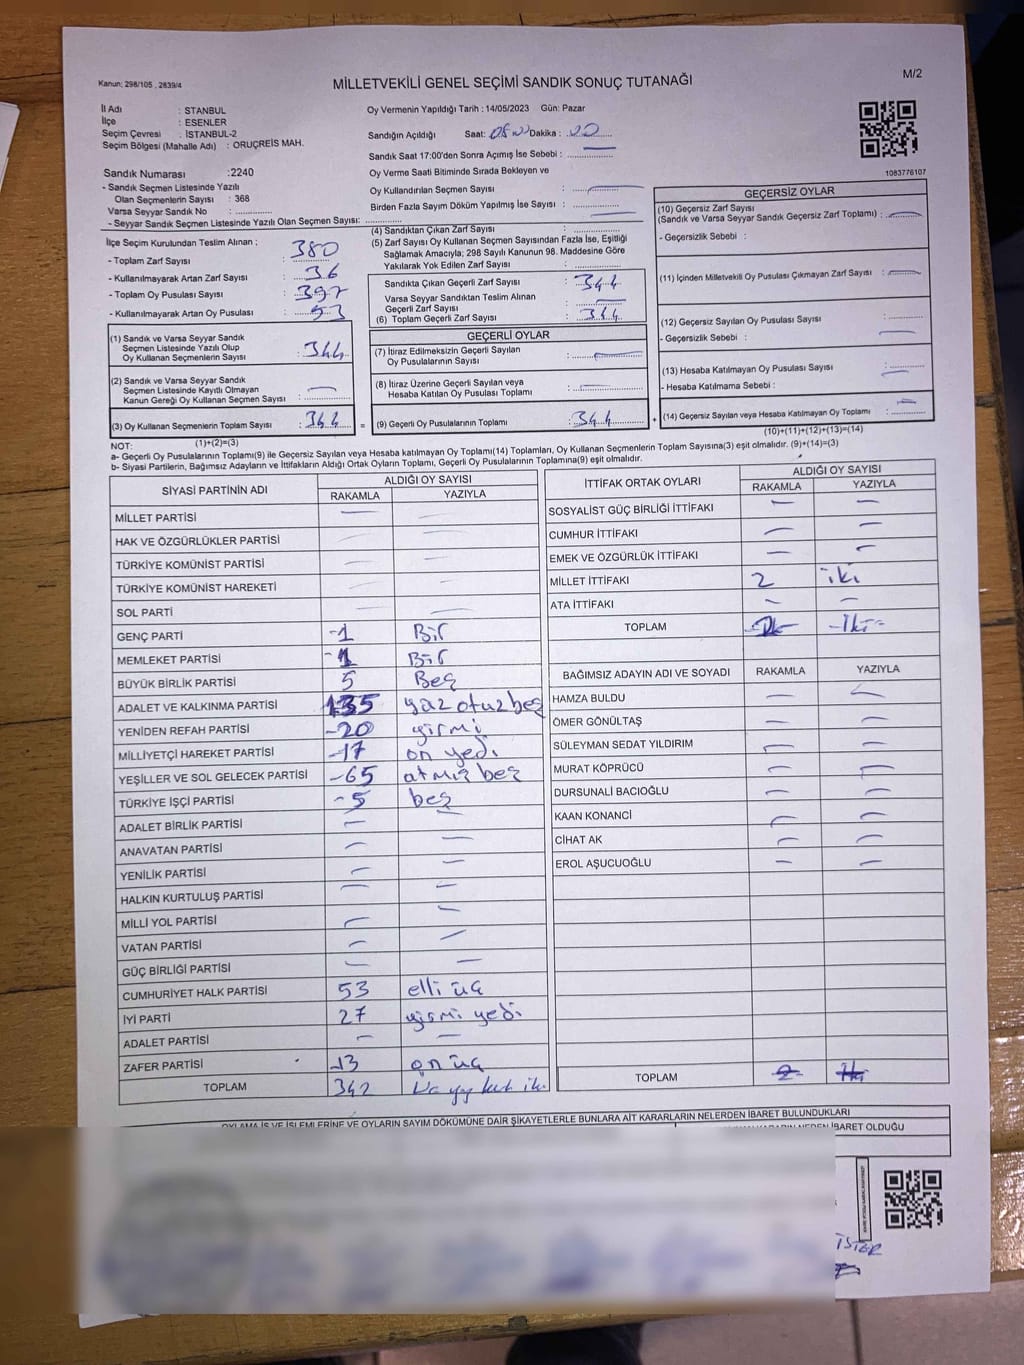 Kanun: 298/105 , 2839/4
MİLLETVEKİLİ GENEL SEÇİMİ SANDIK SONUÇ TUTANAĞI
M/2
İl Adı : STANBUL
İlçe : ESENLER
Seçim Çevresi : İSTANBUL-2
Seçim Bölgesi (Mahalle Adı) : ORUÇREİS MAH.
Oy Vermenin Yapıldığı Tarih : 14/05/2023 Gün: Pazar
Sandığın Açıldığı Saat: Dakika :
Sandık Saat 17:00'den Sonra Açımış İse Sebebi :
Oy Verme Saati Bitiminde Sırada Bekleyen ve
Oy Kullandırılan Seçmen Sayısı :
Birden Fazla Sayım Döküm Yapılmış İse Sayısı :
1083776107
Sandık Numarası :2240
- Sandık Seçmen Listesinde Yazılı
Olan Seçmenlerin Sayısı : 368
Varsa Seyyar Sandık No :
- Seyyar Sandık Seçmen Listesinde Yazılı Olan Seçmen Sayısı:
İlçe Seçim Kurulundan Teslim Alınan ;
- Toplam Zarf Sayısı : 380
- Kullanılmayarak Artan Zarf Sayısı : 36
- Toplam Oy Pusulası Sayısı : 397
- Kullanılmayarak Artan Oy Pusulası : 53
(1) Sandık ve Varsa Seyyar Sandık
Seçmen Listesinde Yazılı Olup
Oy Kullanan Seçmenlerin Sayısı : 344
(2) Sandık ve Varsa Seyyar Sandık
Seçmen Listesinde Kayıtlı Olmayan
Kanun Gereği Oy Kullanan Seçmen Sayısı : —
(3) Oy Kullanan Seçmenlerin Toplam Sayısı : 344
(4) Sandıktan Çıkan Zarf Sayısı :
(5) Zarf Sayısı Oy Kullanan Seçmen Sayısından Fazla İse, Eşitliği
Sağlamak Amacıyla; 298 Sayılı Kanunun 98. Maddesine Göre
Yakılarak Yok Edilen Zarf Sayısı :
Sandıkta Çıkan Geçerli Zarf Sayısı : 344
Varsa Seyyar Sandıktan Teslim Alınan
Geçerli Zarf Sayısı : —
(6) Toplam Geçerli Zarf Sayısı : 344
GEÇERLİ OYLAR
(7) İtiraz Edilmeksizin Geçerli Sayılan
Oy Pusulalarının Sayısı : —
(8) İtiraz Üzerine Geçerli Sayılan veya
Hesaba Katılan Oy Pusulası Toplamı : —
= (9) Geçerli Oy Pusulalarının Toplamı : 344
GEÇERSİZ OYLAR
(10) Geçersiz Zarf Sayısı
(Sandık ve Varsa Seyyar Sandık Geçersiz Zarf Toplamı) : —
- Geçersizlik Sebebi :
(11) İçinden Milletvekili Oy Pusulası Çıkmayan Zarf Sayısı : —
(12) Geçersiz Sayılan Oy Pusulası Sayısı :
- Geçersizlik Sebebi : —
(13) Hesaba Katılmayan Oy Pusulası Sayısı : —
- Hesaba Katılmama Sebebi :
+ (14) Geçersiz Sayılan veya Hesaba Katılmayan Oy Toplamı : —
(1)+(2)=(3)
(10)+(11)+(12)+(13)=(14)
NOT:
a- Geçerli Oy Pusulalarının Toplamı(9) ile Geçersiz Sayılan veya Hesaba katılmayan Oy Toplamı(14) Toplamları, Oy Kullanan Seçmenlerin Toplam Sayısına(3) eşit olmalıdır. (9)+(14)=(3)
b- Siyasi Partilerin, Bağımsız Adayların ve İttifakların Aldığı Ortak Oyların Toplamı, Geçerli Oy Pusulalarının Toplamına(9) eşit olmalıdır.
SİYASİ PARTİNİN ADI ALDIĞI OY SAYISI
RAKAMLA YAZIYLA
MİLLET PARTİSİ — —
HAK VE ÖZGÜRLÜKLER PARTİSİ — —
TÜRKİYE KOMÜNİST PARTİSİ — —
TÜRKİYE KOMÜNİST HAREKETİ — —
SOL PARTİ — —
GENÇ PARTİ -1 Bir
MEMLEKET PARTİSİ -1 Bir
BÜYÜK BİRLİK PARTİSİ 5 Beş
ADALET VE KALKINMA PARTİSİ 135 yüz otuz beş
YENİDEN REFAH PARTİSİ -20 yirmi
MİLLİYETÇİ HAREKET PARTİSİ -17 on yedi
YEŞİLLER VE SOL GELECEK PARTİSİ -65 atmış beş
TÜRKİYE İŞÇİ PARTİSİ -5 beş
ADALET BİRLİK PARTİSİ — —
ANAVATAN PARTİSİ — —
YENİLİK PARTİSİ — —
HALKIN KURTULUŞ PARTİSİ — —
MİLLİ YOL PARTİSİ — —
VATAN PARTİSİ — —
GÜÇ BİRLİĞİ PARTİSİ — —
CUMHURİYET HALK PARTİSİ 53 elli üç
İYİ PARTİ 27 yirmi yedi
ADALET PARTİSİ — —
ZAFER PARTİSİ 13 on üç
TOPLAM 342
İTTİFAK ORTAK OYLARI ALDIĞI OY SAYISI
RAKAMLA YAZIYLA
SOSYALİST GÜÇ BİRLİĞİ İTTİFAKI — —
CUMHUR İTTİFAKI — —
EMEK VE ÖZGÜRLÜK İTTİFAKI — —
MİLLET İTTİFAKI 2 iki
ATA İTTİFAKI — —
TOPLAM -2- -İki-
BAĞIMSIZ ADAYIN ADI VE SOYADI RAKAMLA YAZIYLA
HAMZA BULDU — —
ÖMER GÖNÜLTAŞ — —
SÜLEYMAN SEDAT YILDIRIM — —
MURAT KÖPRÜCÜ — —
DURSUNALİ BACIOĞLU — —
KAAN KONANCİ — —
CİHAT AK — —
EROL AŞUCUOĞLU — —
TOPLAM
OYLAMA İŞ VE İŞLEMLERİNE VE OYLARIN SAYIM DÖKÜMÜNE DAİR ŞİKAYETLERLE BUNLARA AİT KARARLARIN NELERDEN İBARET BULUNDUKLARI
İBARET OLDUĞU